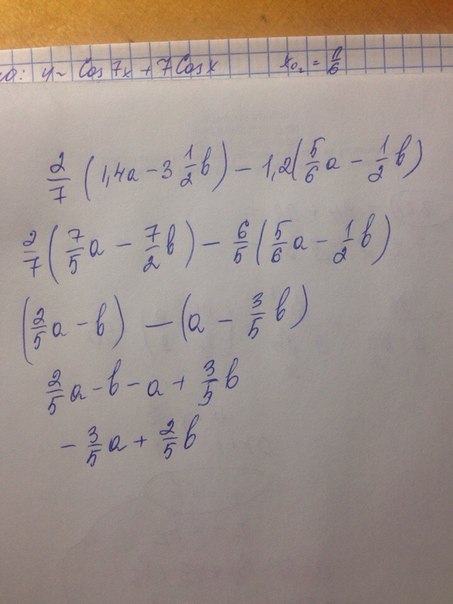 y = Cos 7x + 7 Cos x x₀ = π/6
2/7 (1,4a - 3 1/2 b) - 1,2 (5/6 a - 1/2 b)
2/7 (7/5 a - 7/2 b) - 6/5 (5/6 a - 1/2 b)
(2/5 a - b) - (a - 3/5 b)
2/5 a - b - a + 3/5 b
- 3/5 a + 2/5 b